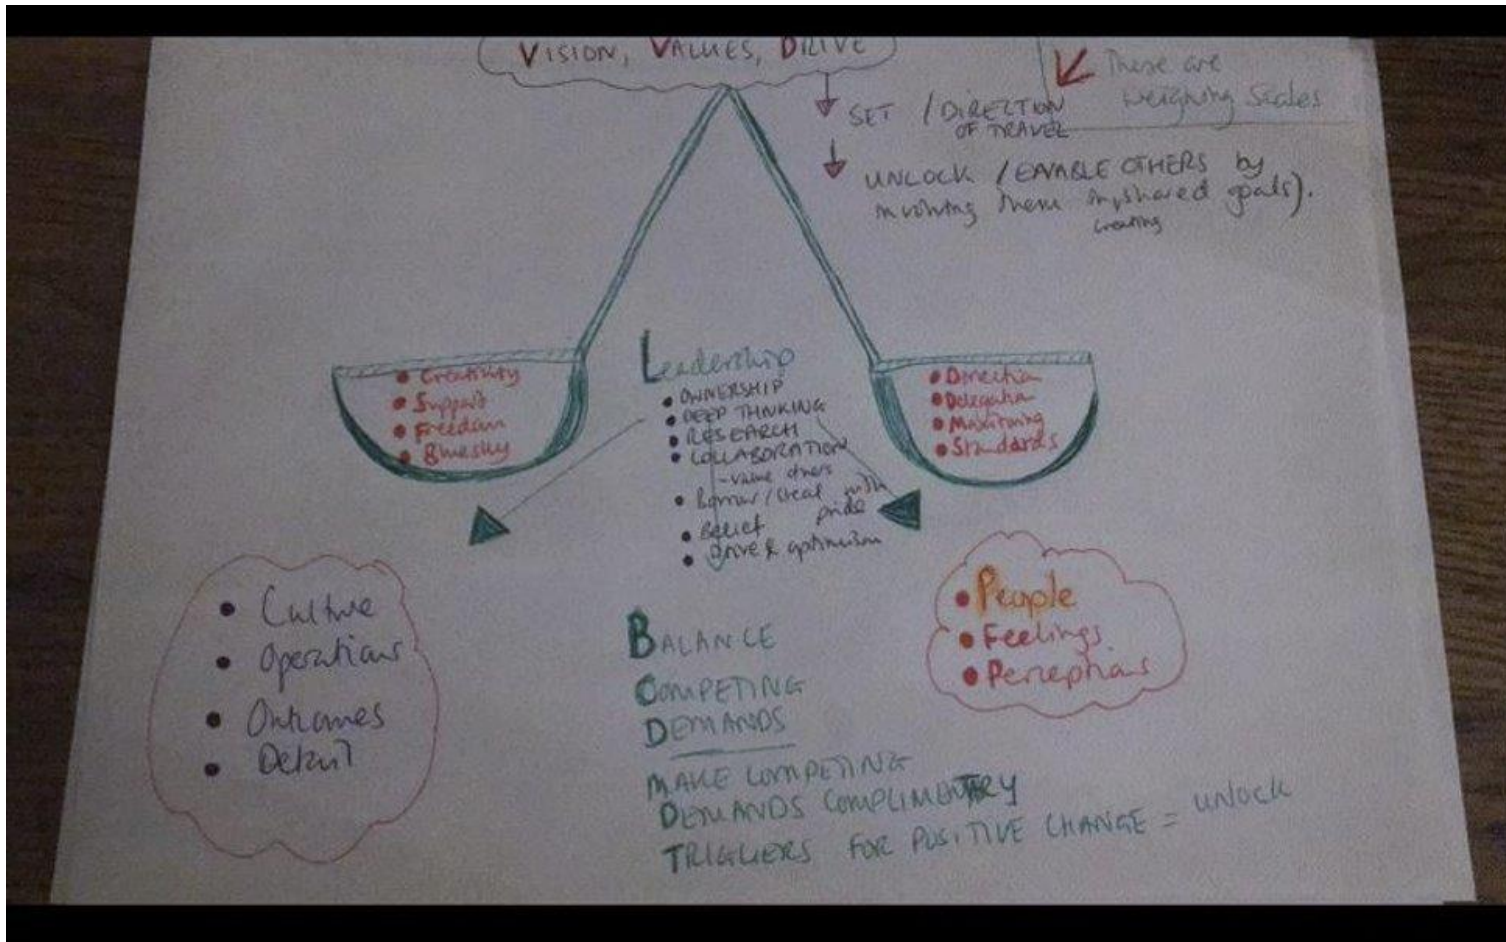 VISION, VALUES, DRIVE
These are
weighing scales
SET / DIRECTION
OF TRAVEL
UNLOCK / ENABLE OTHERS by
involving them in shared goals).
creating
Leadership
• OWNERSHIP
• DEEP THINKING
• RESEARCH
• COLLABORATION
- value others
• Borrow / steal with
pride
• Belief
• Drive & optimism
• Creativity
• Support
• Freedom
• Bluesky
• Direction
• Delegation
• Monitoring
• Standards
• Culture
• Operations
• Outcomes
• Detail
• People
• Feelings
• Perceptions
BALANCE
COMPETING
DEMANDS
MAKE COMPETING
DEMANDS COMPLIMENTRY
TRIGGERS FOR POSITIVE CHANGE = UNLOCK